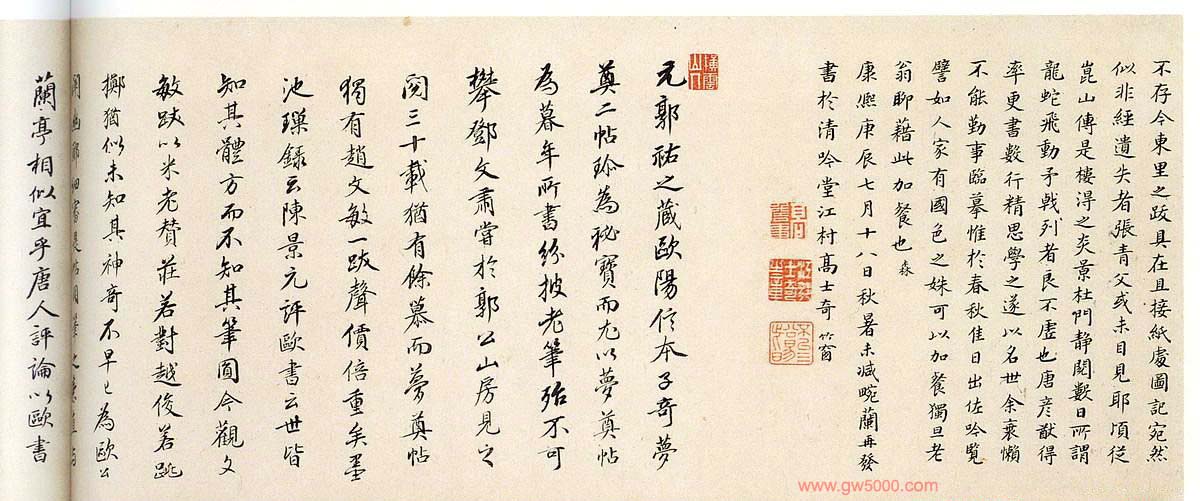 不存今東里之跋具在且接紙處圖記宛然
似非經遺失者張青父或未目見耶頃從
崑山傳是樓得之炎景杜門静閱數日所謂
龍蛇飛動予戟列者良不虛也唐彦猷得
率更書數行精思學之遂以名世余衰懶
不能勤事臨摹惟於春秋佳日出佐吟覽
譬如人家有國色之姝可以加餐獨旦老
翁聊藉此加餐也森
康熙庚辰七月十八日秋暑未減畹蘭再發
書於清吟堂江村高士奇竹窗
橫雲山人
元郭祐之蔵歐陽信本子奇夢
奠二帖珍為秘寶而尤以夢奠帖
為暮年所書紛披老筆殆不可
攀鄧文肅嘗於郭公山房見之
閱三十載猶有餘慕而夢奠帖
獨有趙文敏一跋聲價倍重矣墨
池璅録云陳景元評歐書云世皆
知其體方而不知其筆圓今觀文
敏跋以米老賛莊若對越俊若跳
擲猶似未知其神奇不早已為歐公
蘭亭相似宜乎唐人評論以歐書
www.gw5000.com